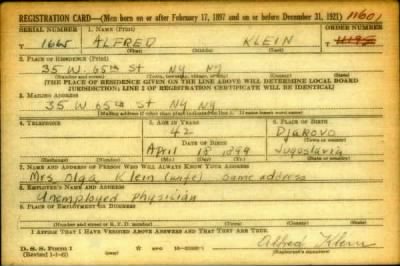 REGISTRATION CARD—(Men born on or after February 17, 1897 and on or before December 31, 1921) 11601
SERIAL NUMBER 1. NAME (Print) ORDER NUMBER
T 1665 ALFRED KLEIN
(First) (Middle) (Last)
2. PLACE OF RESIDENCE (Print)
35 W. 65th ST NY NY
(Number and street) (Town, township, village, or city) (County) (State)
[THE PLACE OF RESIDENCE GIVEN ON THE LINE ABOVE WILL DETERMINE LOCAL BOARD
JURISDICTION; LINE 2 OF REGISTRATION CERTIFICATE WILL BE IDENTICAL]
3. MAILING ADDRESS
35 W 65th ST NY NY
[Mailing address if other than place indicated on line 2. If same insert word same]
4. TELEPHONE 5. AGE IN YEARS 6. PLACE OF BIRTH
42 Djakovo
DATE OF BIRTH (Town or county)
April 18 1899 Jugoslavia
(Exchange) (Number) (Mo.) (Day) (Yr.) (State or country)
7. NAME AND ADDRESS OF PERSON WHO WILL ALWAYS KNOW YOUR ADDRESS
Mrs Olga Klein (wife) same address
8. EMPLOYER'S NAME AND ADDRESS
Unemployed physician
9. PLACE OF EMPLOYMENT OR BUSINESS
(Number and street or R. F. D. number) (Town) (County) (State)
I AFFIRM THAT I HAVE VERIFIED ABOVE ANSWERS AND THAT THEY ARE TRUE.
D. S. S. Form 1
(Revised 1-1-42) GPO Alfred Klein
(Registrant's signature)